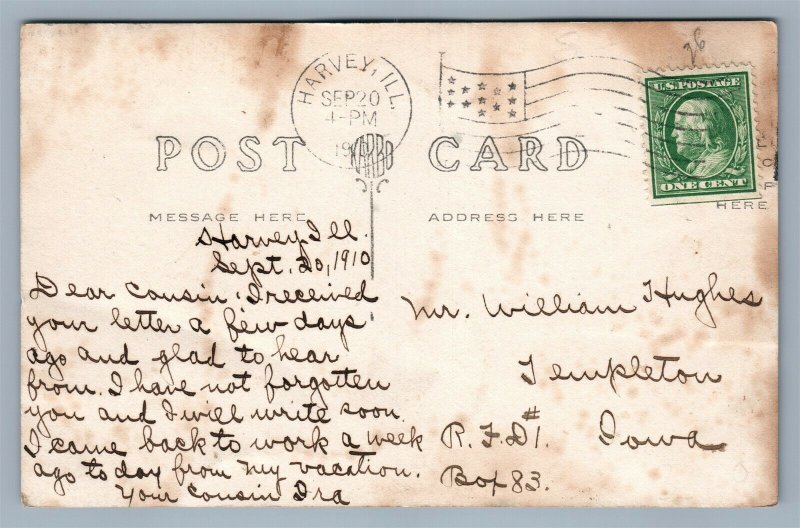 26
HARVEY, ILL.
SEP 20
4-PM
U.S. POSTAGE
ONE CENT
POST CARD
MESSAGE HERE
ADDRESS HERE
HERE
Harvey Ill.
Sept. 20, 1910
Dear Cousin: I received
your letter a few days
ago and glad to hear
from. I have not forgotten
you and I will write soon.
I came back to work a week
ago to day from my vacation.
Your Cousin Ira
Mr. William Hughes
Templeton
R.F.D #1. Iowa
Box 83.